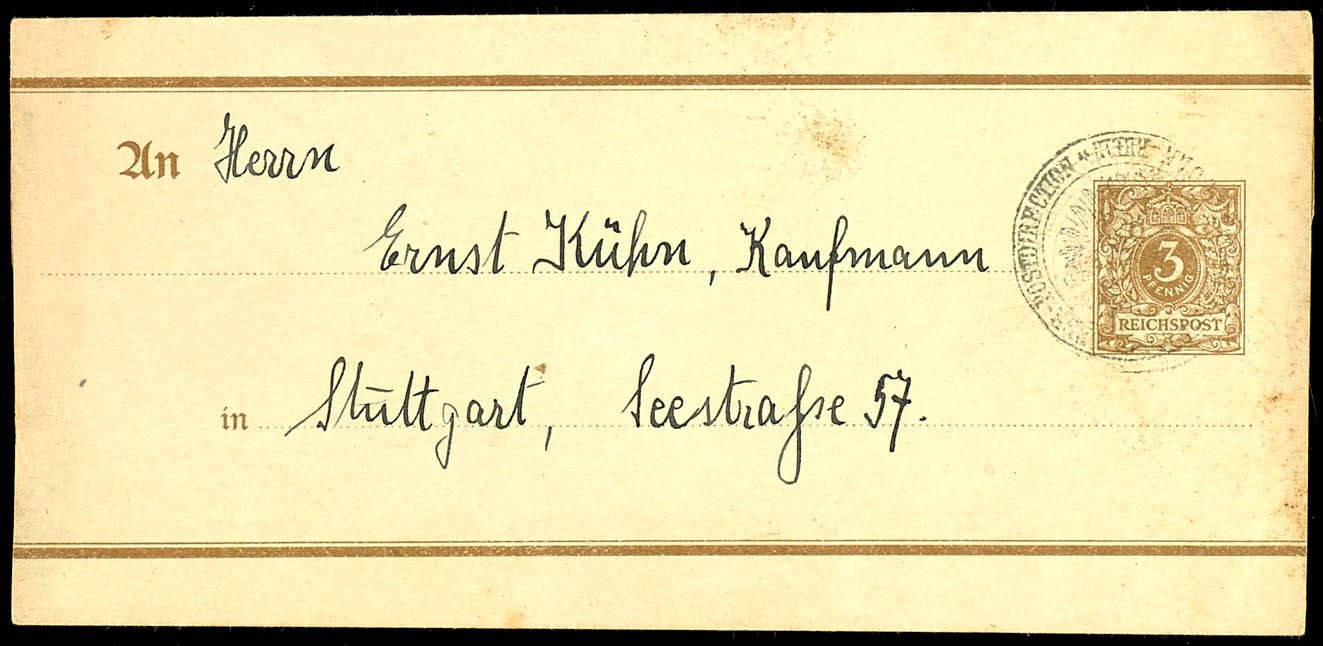 An Herrn
Ernst Kühn, Kaufmann
in Stuttgart, Seestraße 57.
POSTDIRECTION
3
PFENNIG
REICHSPOST